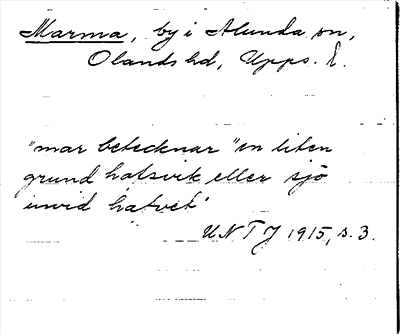 Marma, by i Alunda sn,
Olands hd, Upps. l.
"mar betecknar "en liten
grund hafsvik eller sjö
invid hafvet"
UNT J 1915, s. 3.